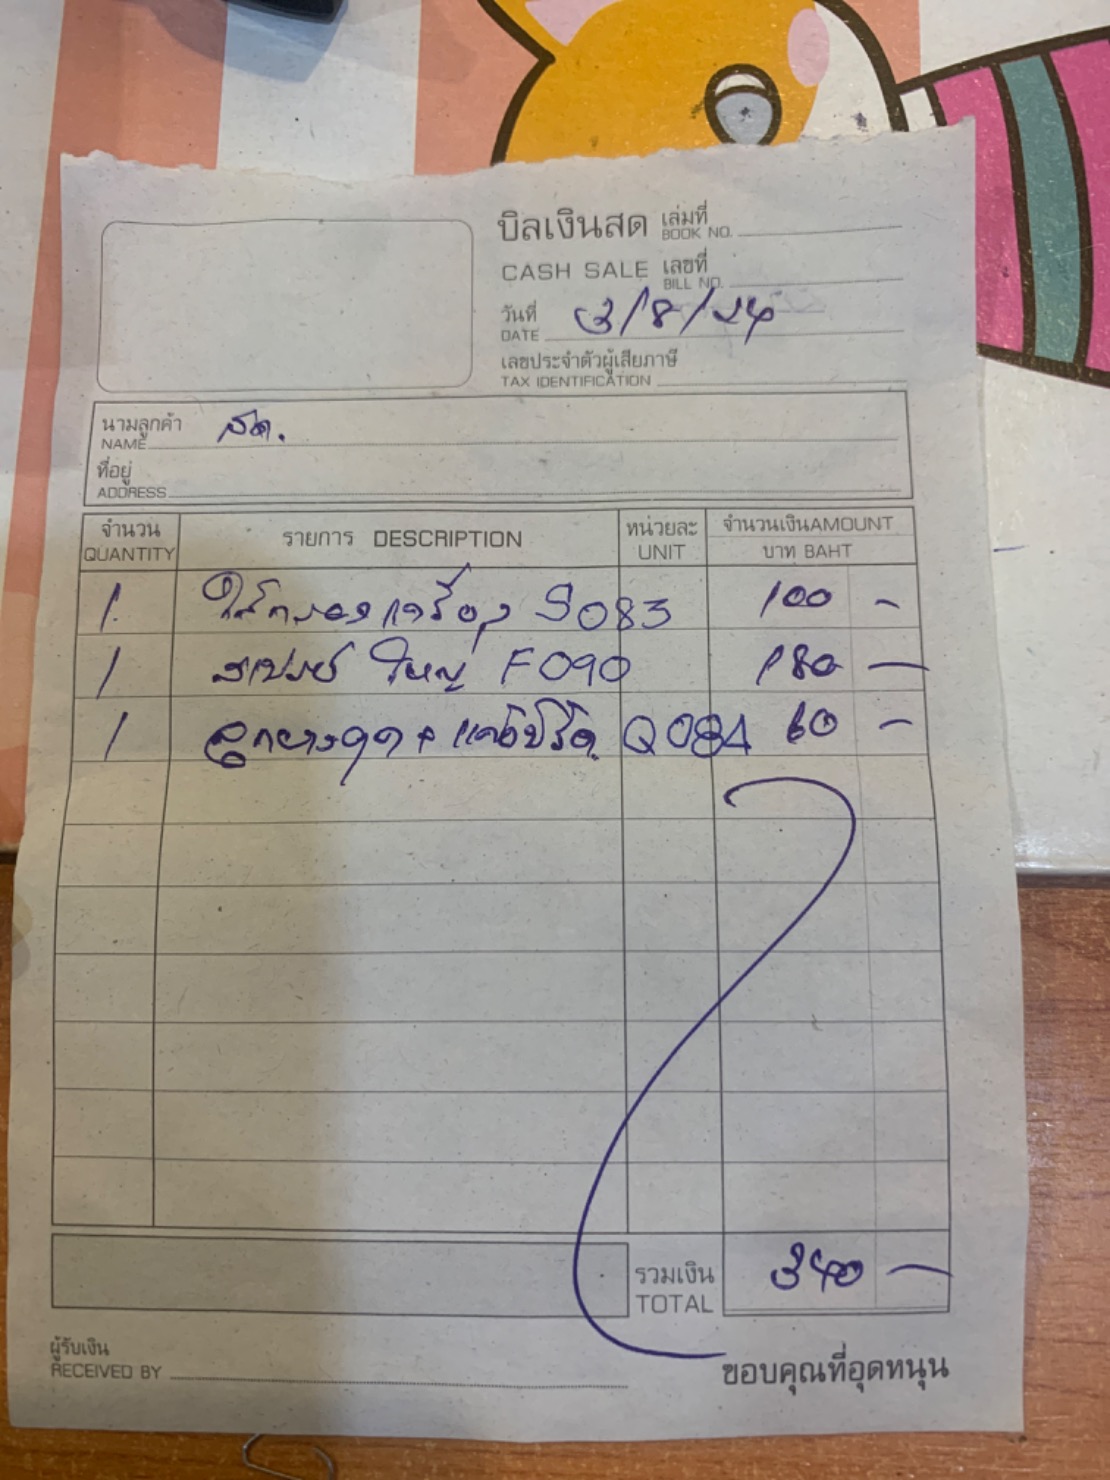 บิลเงินสด เล่มที่ BOOK NO.
CASH SALE เลขที่ BILL NO.
วันที่ DATE 3/8/24
เลขประจำตัวผู้เสียภาษี
TAX IDENTIFICATION
นามลูกค้า NAME สด.
ที่อยู่ ADDRESS
จำนวน QUANTITY รายการ DESCRIPTION หน่วยละ UNIT จำนวนเงิน AMOUNT บาท BAHT
1. ไส้กรองเครื่อง S083 100 -
1 สเปรย์ ใหญ่ F090 180 -
1 ลูกยาง Q084 60 -
รวมเงิน TOTAL 340 -
ผู้รับเงิน
RECEIVED BY
ขอบคุณที่อุดหนุน